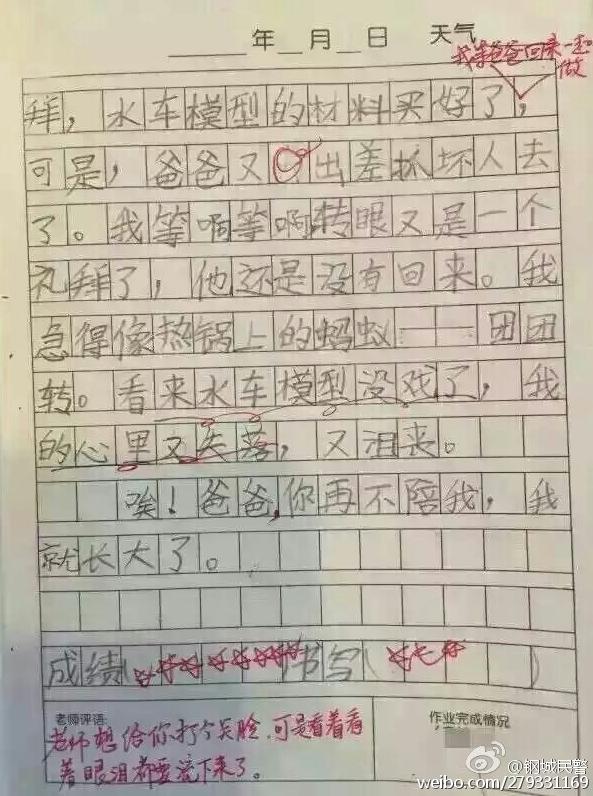 年 月 日 天气
我等爸爸回来一起做
拜，水车模型的材料买好了，
可是，爸爸又出差抓坏人去
了。我等啊等啊转眼又是一个
礼拜了，他还是没有回来。我
急得像热锅上的蚂蚁——团团
转。看来水车模型没戏了，我
的心里又失落，又沮丧。
唉！爸爸，你再不陪我，我
就长大了。
成绩（☆☆☆☆☆☆☆书写（☆☆☆）
老师评语：
老师想给你打个笑脸，可是看着看
着眼泪都要流下来了。
作业完成情况
@钢城民警
weibo.com/279331169